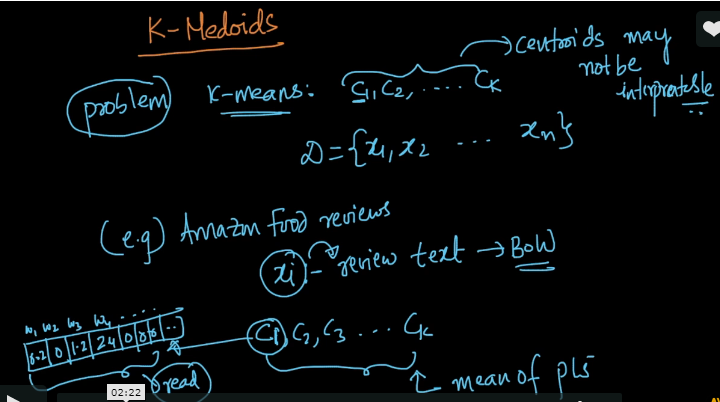 K-Medoids
problem K-means: C1, C2, ..... CK → centroids may
not be
interpretable
D = {x1, x2 ... xn}
(e.g) Amazon food reviews
xi :- review text → BoW
w1 w2 w3 w4 ....
0 1.2 2.4 0 0 0 .. C1, C2, C3 ... CK
read mean of pts
02:22